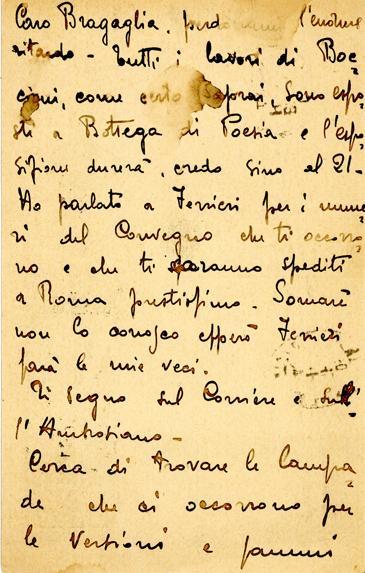 Caro Bragaglia, perdo l'enorme
ritardo - Tutti i lavori di Boc=
cioni, come certo saprai, sono espo=
sti a Bottega di Poesia e l'espo=
sizione durerà, credo sino al 21-
Ho parlato a Ferrieri per i nume=
ri del Convegno che ti occorro=
no e che ti saranno spediti
a Roma prestissimo. Somaré
non lo conosco epperò Ferrieri
farà le mie veci.
Ti segno sul Corriere e sull'
l'Ambrosiano -
Cerca di trovare le lampa=
de che ci occorrono per
le versioni e fammi